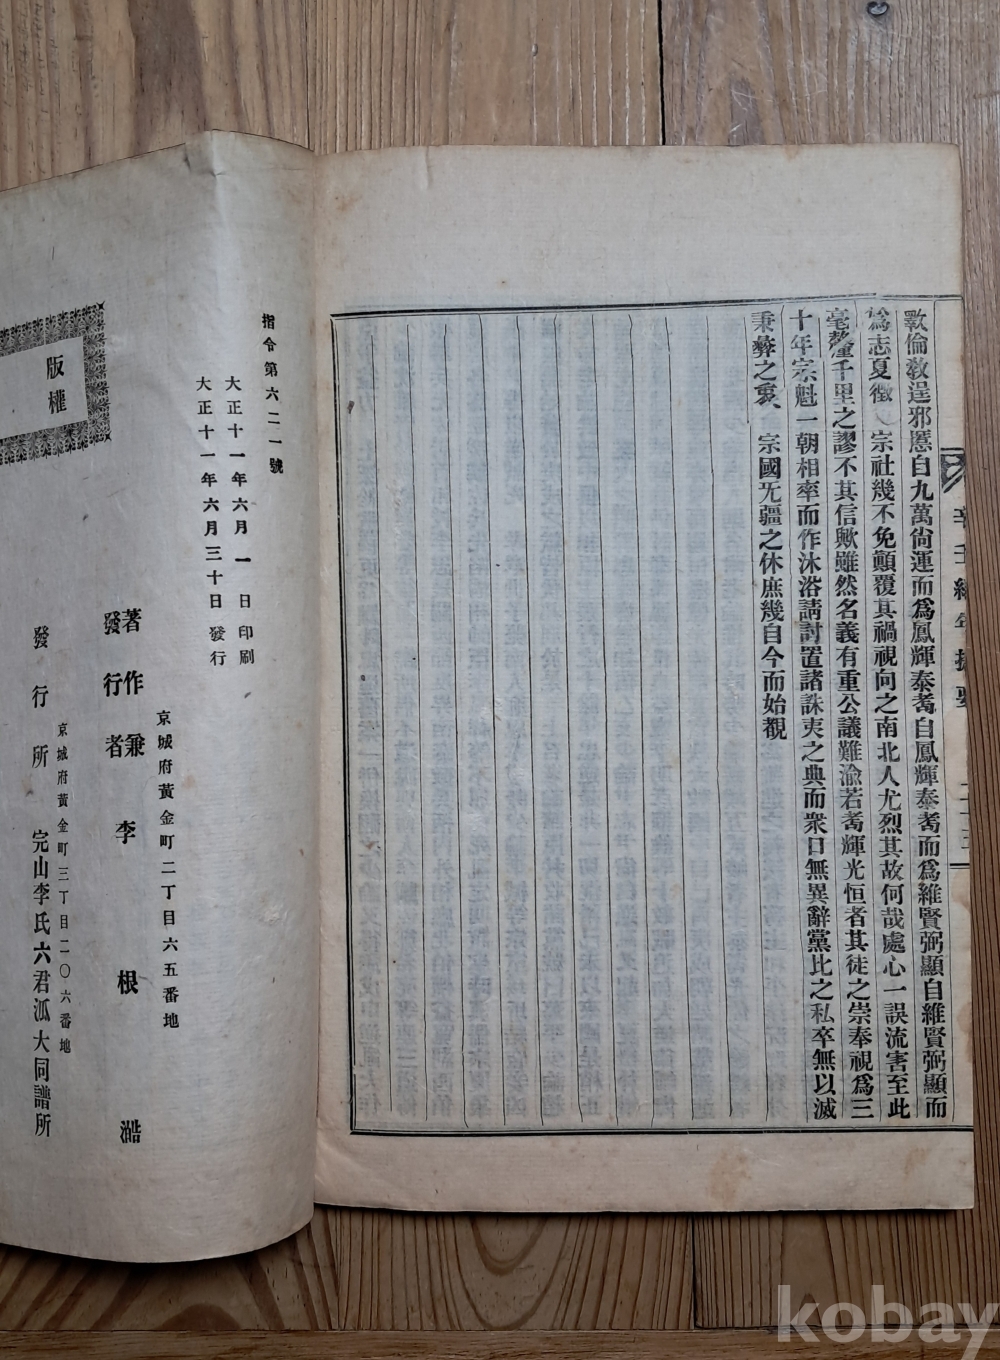 斁倫敎逞邪慝自九萬尙運而爲鳳輝泰耈自鳳輝泰耈而爲維賢弼顯自維賢弼顯而
爲志夏徵 宗社幾不免顚覆其禍視向之南北人尤烈其故何哉處心一誤流害至此
毫釐千里之謬不其信歟雖然名義有重公議難渝若耈輝光恒者其徒之崇奉視爲三
十年宗魁一朝相率而作沐浴請討置諸誅夷之典而衆口無異辭黨比之私卒無以滅
秉彝之衷 宗國旡疆之休庶幾自今而始覩
指令第六二一號
大正十一年六月一日印刷
大正十一年六月三十日發行
京城府黃金町二丁目六五番地
著作兼
發行者
李根澔
京城府黃金町三丁目二〇六番地
發行所 完山李氏六君派大同譜所
版權
kobay